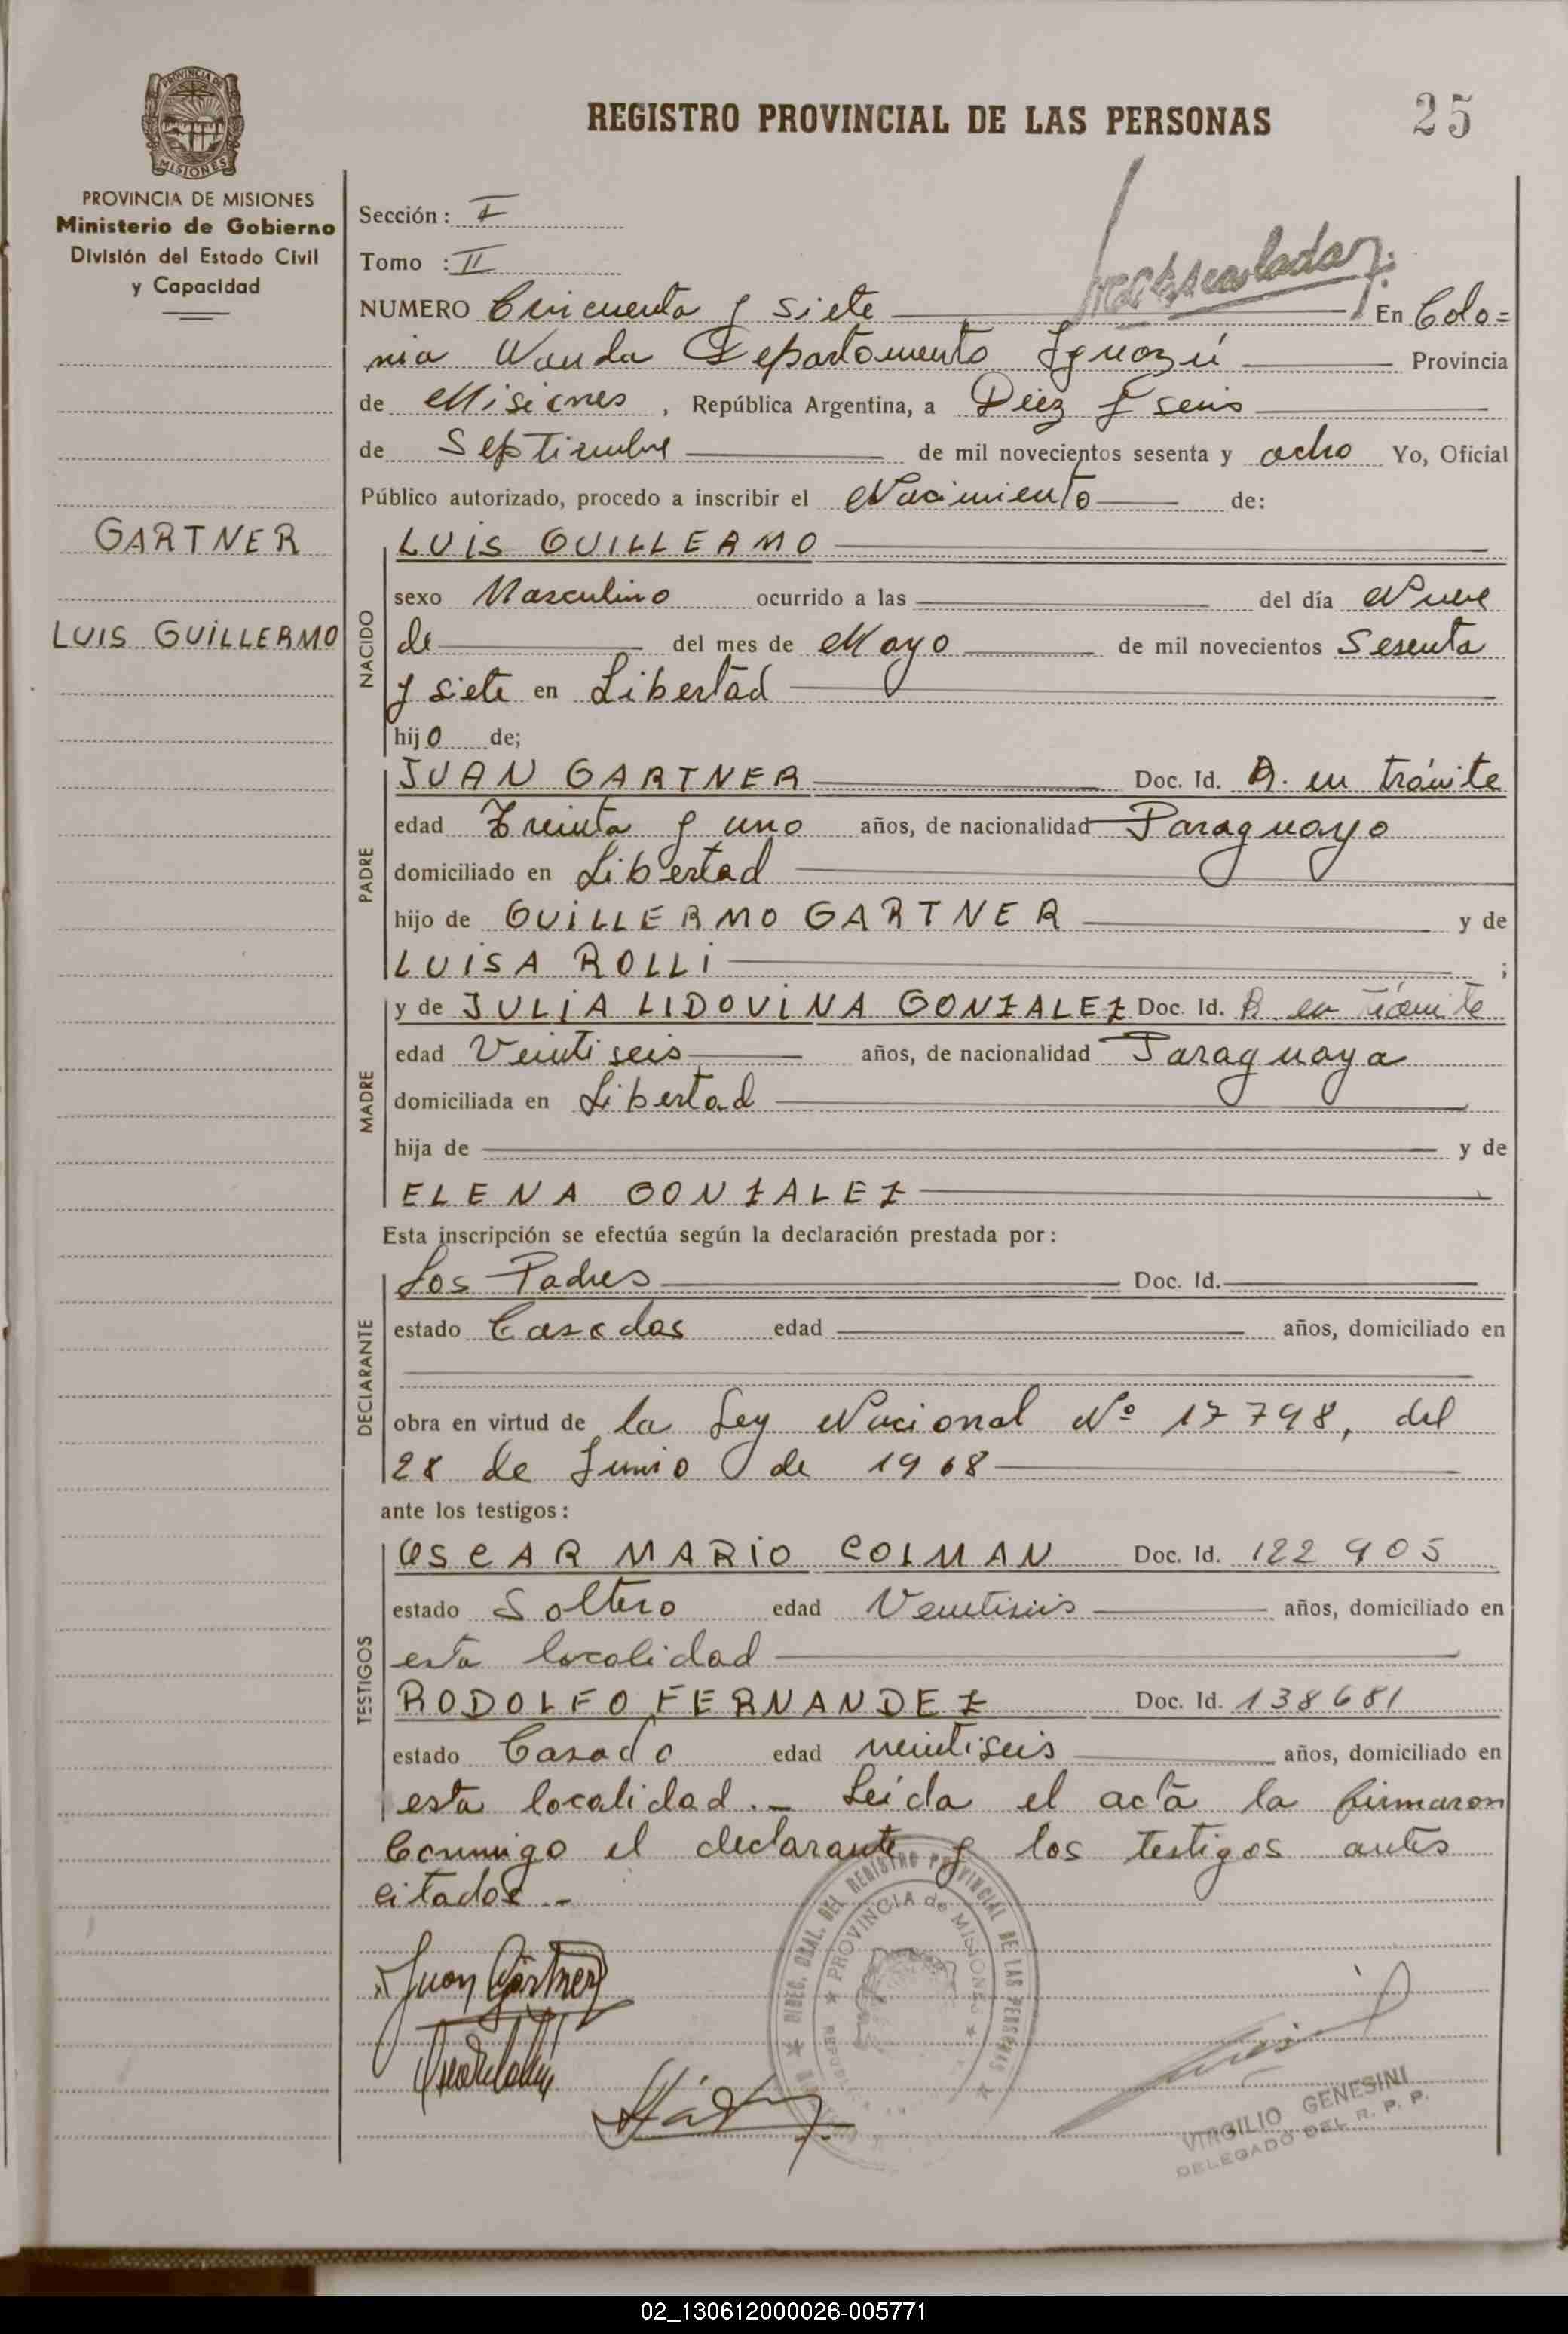 REGISTRO PROVINCIAL DE LAS PERSONAS
25
PROVINCIA DE
MISIONES
PROVINCIA DE MISIONES
Ministerio de Gobierno
División del Estado Civil
y Capacidad
GARTNER
LUIS GUILLERMO
Sección: I
Tomo : II
NUMERO Cincuenta y siete En Colo=
nia Wanda Departamento Iguazú Provincia
de Misiones, República Argentina, a Diez y seis
de Septiembre de mil novecientos sesenta y ocho Yo, Oficial
Público autorizado, procedo a inscribir el Nacimiento de:
NACIDO
LUIS GUILLERMO
sexo Masculino ocurrido a las del día Nueve
de del mes de Mayo de mil novecientos Sesenta
y siete en Libertad
hijo de;
PADRE
JUAN GARTNER Doc. Id. R. en trámite
edad Treinta y uno años, de nacionalidad Paraguayo
domiciliado en Libertad
hijo de GUILLERMO GARTNER y de
LUISA ROLLI ;
MADRE
y de JULIA LIDOVINA GONZALEZ Doc. Id. R en trámite
edad Veintiseis años, de nacionalidad Paraguaya
domiciliada en Libertad
hija de y de
ELENA GONZALEZ
Esta inscripción se efectúa según la declaración prestada por:
DECLARANTE
Los Padres Doc. Id.
estado Casados edad años, domiciliado en
obra en virtud de la Ley Nacional Nº 17798, del
28 de Junio de 1968
ante los testigos:
TESTIGOS
OSCAR MARIO COLMAN Doc. Id. 122905
estado Soltero edad Veintiseis años, domiciliado en
esta localidad
RODOLFO FERNANDEZ Doc. Id. 138681
estado Casado edad veintiseis años, domiciliado en
esta localidad.- Leída el acta la firmaron
Conmigo el declarante y los testigos antes
citados.-
Juan Gärtner
DIREC. GRAL. DEL REGISTRO PROVINCIAL DE LAS PERSONAS
PROVINCIA de MISIONES
VIRGILIO GENESINI
DELEGADO DEL R. P. P.
02_130612000026-005771